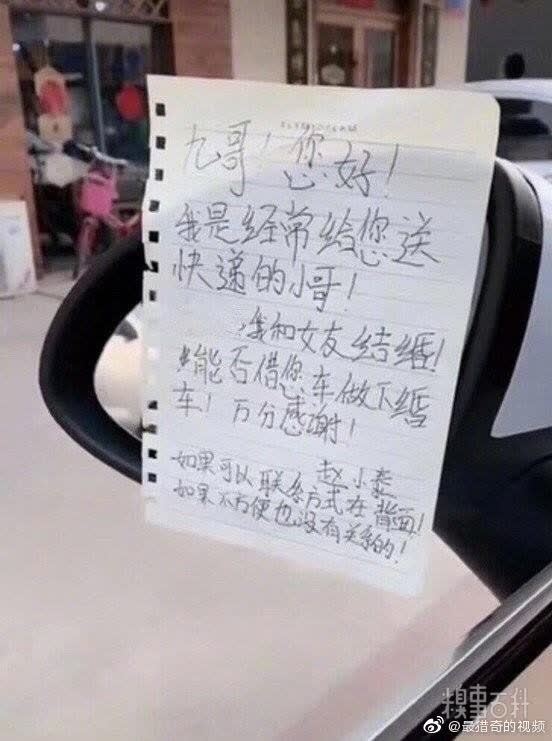 九哥！您好！
我是经常给您送
快递的小哥！
我和女友结婚！
能否借您车做下婚
车！万分感谢！
赵小泰
如果可以联系方式在背面！
如果不方便也没有关系的！
糗事百科
@最猎奇的视频